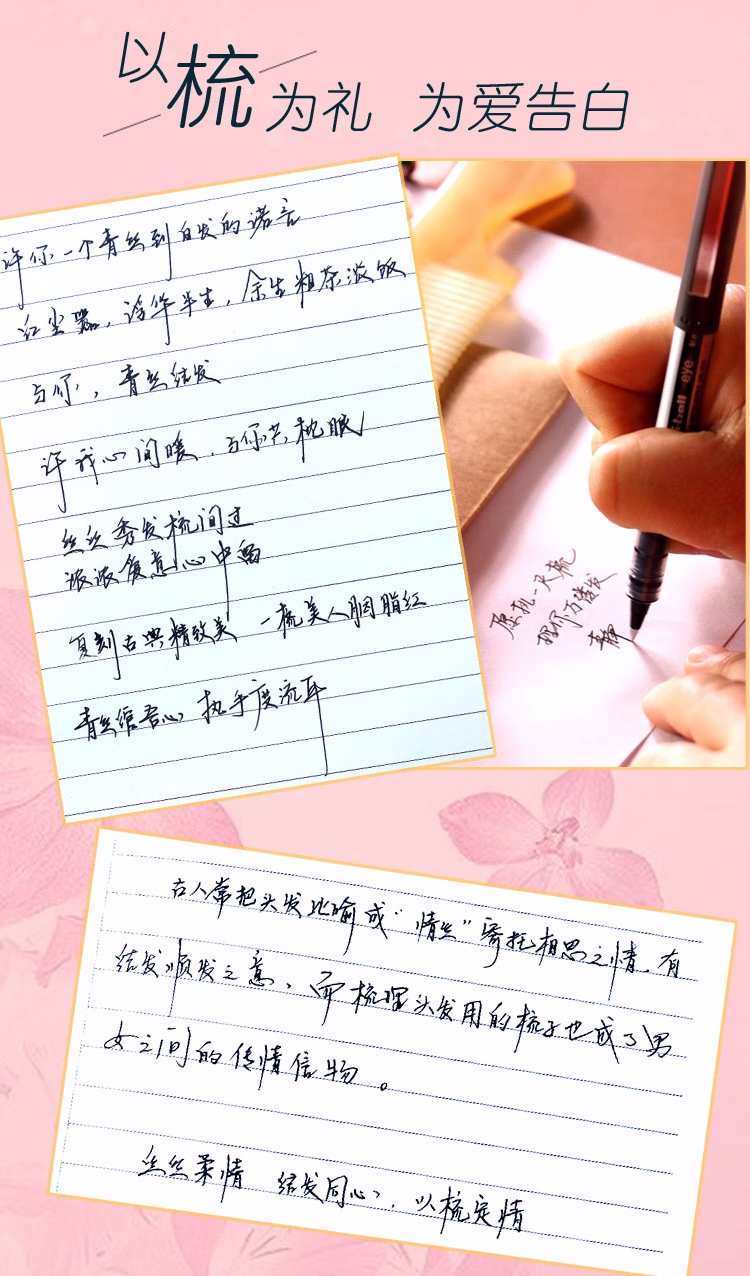 以梳为礼 为爱告白
许你一个青丝到白发的诺言
红尘嚣,浮华半生,余生粗茶淡饭
与你,青丝结发
许我心间暖,与你共枕眠
丝丝秀发梳间过
浓浓爱意心中留
复刻古典精致美 一梳美人胭脂红
青丝绾君心 执手度流年
eye
愿执一尺梳
挽你万缕发
古人常把头发比喻成“情丝”寄托相思之情,有
结发顺发之意,而梳理头发用的梳子也成了男
女之间的传情信物。
丝丝柔情 结发同心,以梳定情